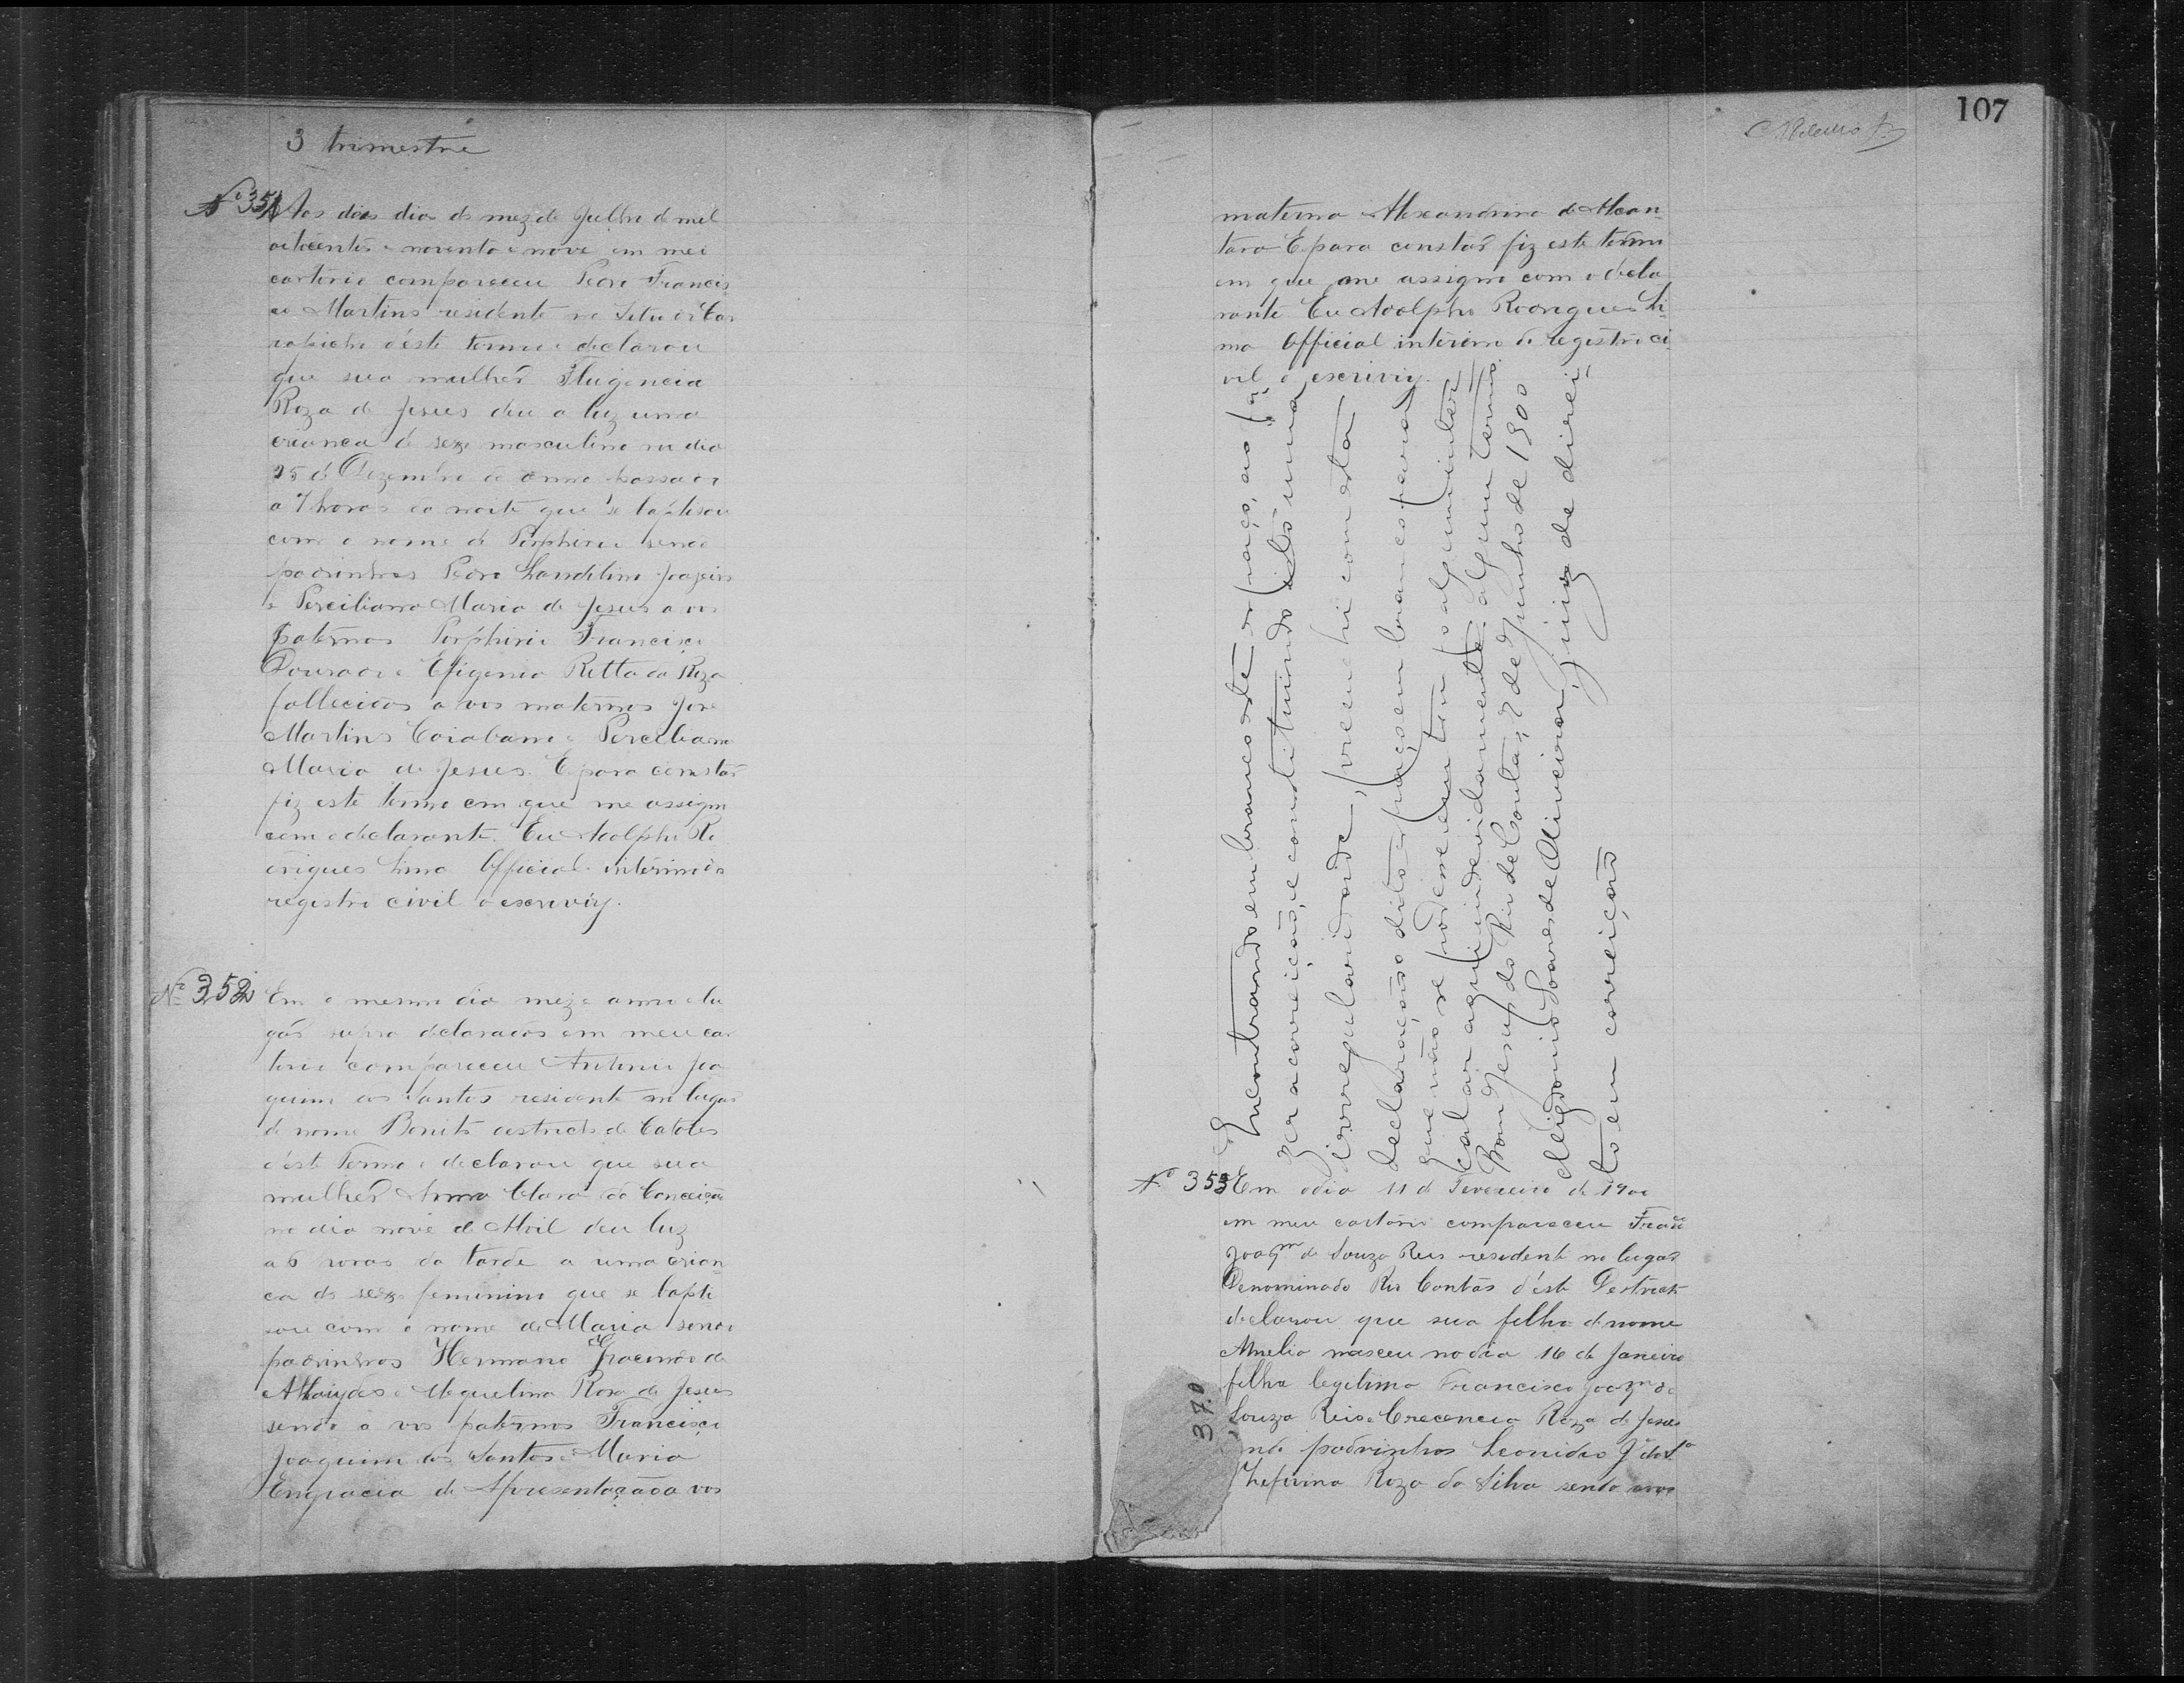 3 trimestre
Nº 351 Aos dois dia do mez de Julho de mil
oitocentos e noventa e nove em meu
cartorio compareceu Pedro Francis
co Martins residente no Sitio do Ca
rapicho d'este termo e declarou
que sua mulher Flugencia
Roza de Jesus deu a luz uma
crianca do sexo masculino no dia
25 de Dezembro do anno passado
a 7 horas da noite que se baptisou
com o nome de Porphirio sendo
padrinhos Pedro Landelino
e Perciliana Maria de Jesus a vos
paternos Porphirio Francisco
Dourado e Efigenia Ritta da Roza
fallecidos a vos maternos José
Martins e Perciliana
Maria de Jesus. E para constar
fiz este termo em que me assigno
com o declarante. Eu Adolpho Ro
drigues Lima Official interino do
registro civil o escreviy.
Nº 352 Em o mesmo dia mez e anno e lu
gar supra declarados em meu car
torio compareceu Antonio Joa
quim dos Santos residente no lugar
de nome Bonito destricto de Catolés
d'este Termo e declarou que sua
mulher Anna Clara da Conceição
no dia nove de Abril deu luz
a 6 horas da tarde a uma crian
ca do sexo feminino que se bapti
sou com o nome de Maria sendo
padrinhos Hermano Gracindo de
Athaydes e Miquelina Rosa de Jesus
sendo a vos paternos Francisco
Joaquim dos Santos e Maria
Engracia de Apresentação a vos
107
materna Alexandrina de Alcan
tara E para constar fiz este termo
em que me assigno com o decla
rante Eu Adolpho Rodrigues Li
ma Official interino do registro ci
vil o escreviy.
Encontrando em branco este espaço, ao fa
zer a correição, e constituindo isto uma
irregularidade, preenchi com esta
declaração dito espaço em branco para
que não se podesse em tempo algum inter
calar aqui indevidamente algum termo.
Bom Jesus do Rio de Contas, 2 de Junho de 1900
Soares de Oliveira, Juiz de direi
to em correição
Nº 353 Em o dia 11 de Fevereiro de 1900
em meu cartorio compareceu Franco
Joaqm de Souza Reis residente no lugar
Denominado Rio Contas d'este Destricto
declarou que sua filha de nome
Amelia nasceu no dia 16 de Janeiro
filha legitima Francisco Joaqm de
Souza Reis e Crecencia Roza de Jesus
ndo padrinhos Leonidio
Zeferina Roza da Silva sendo avos
370